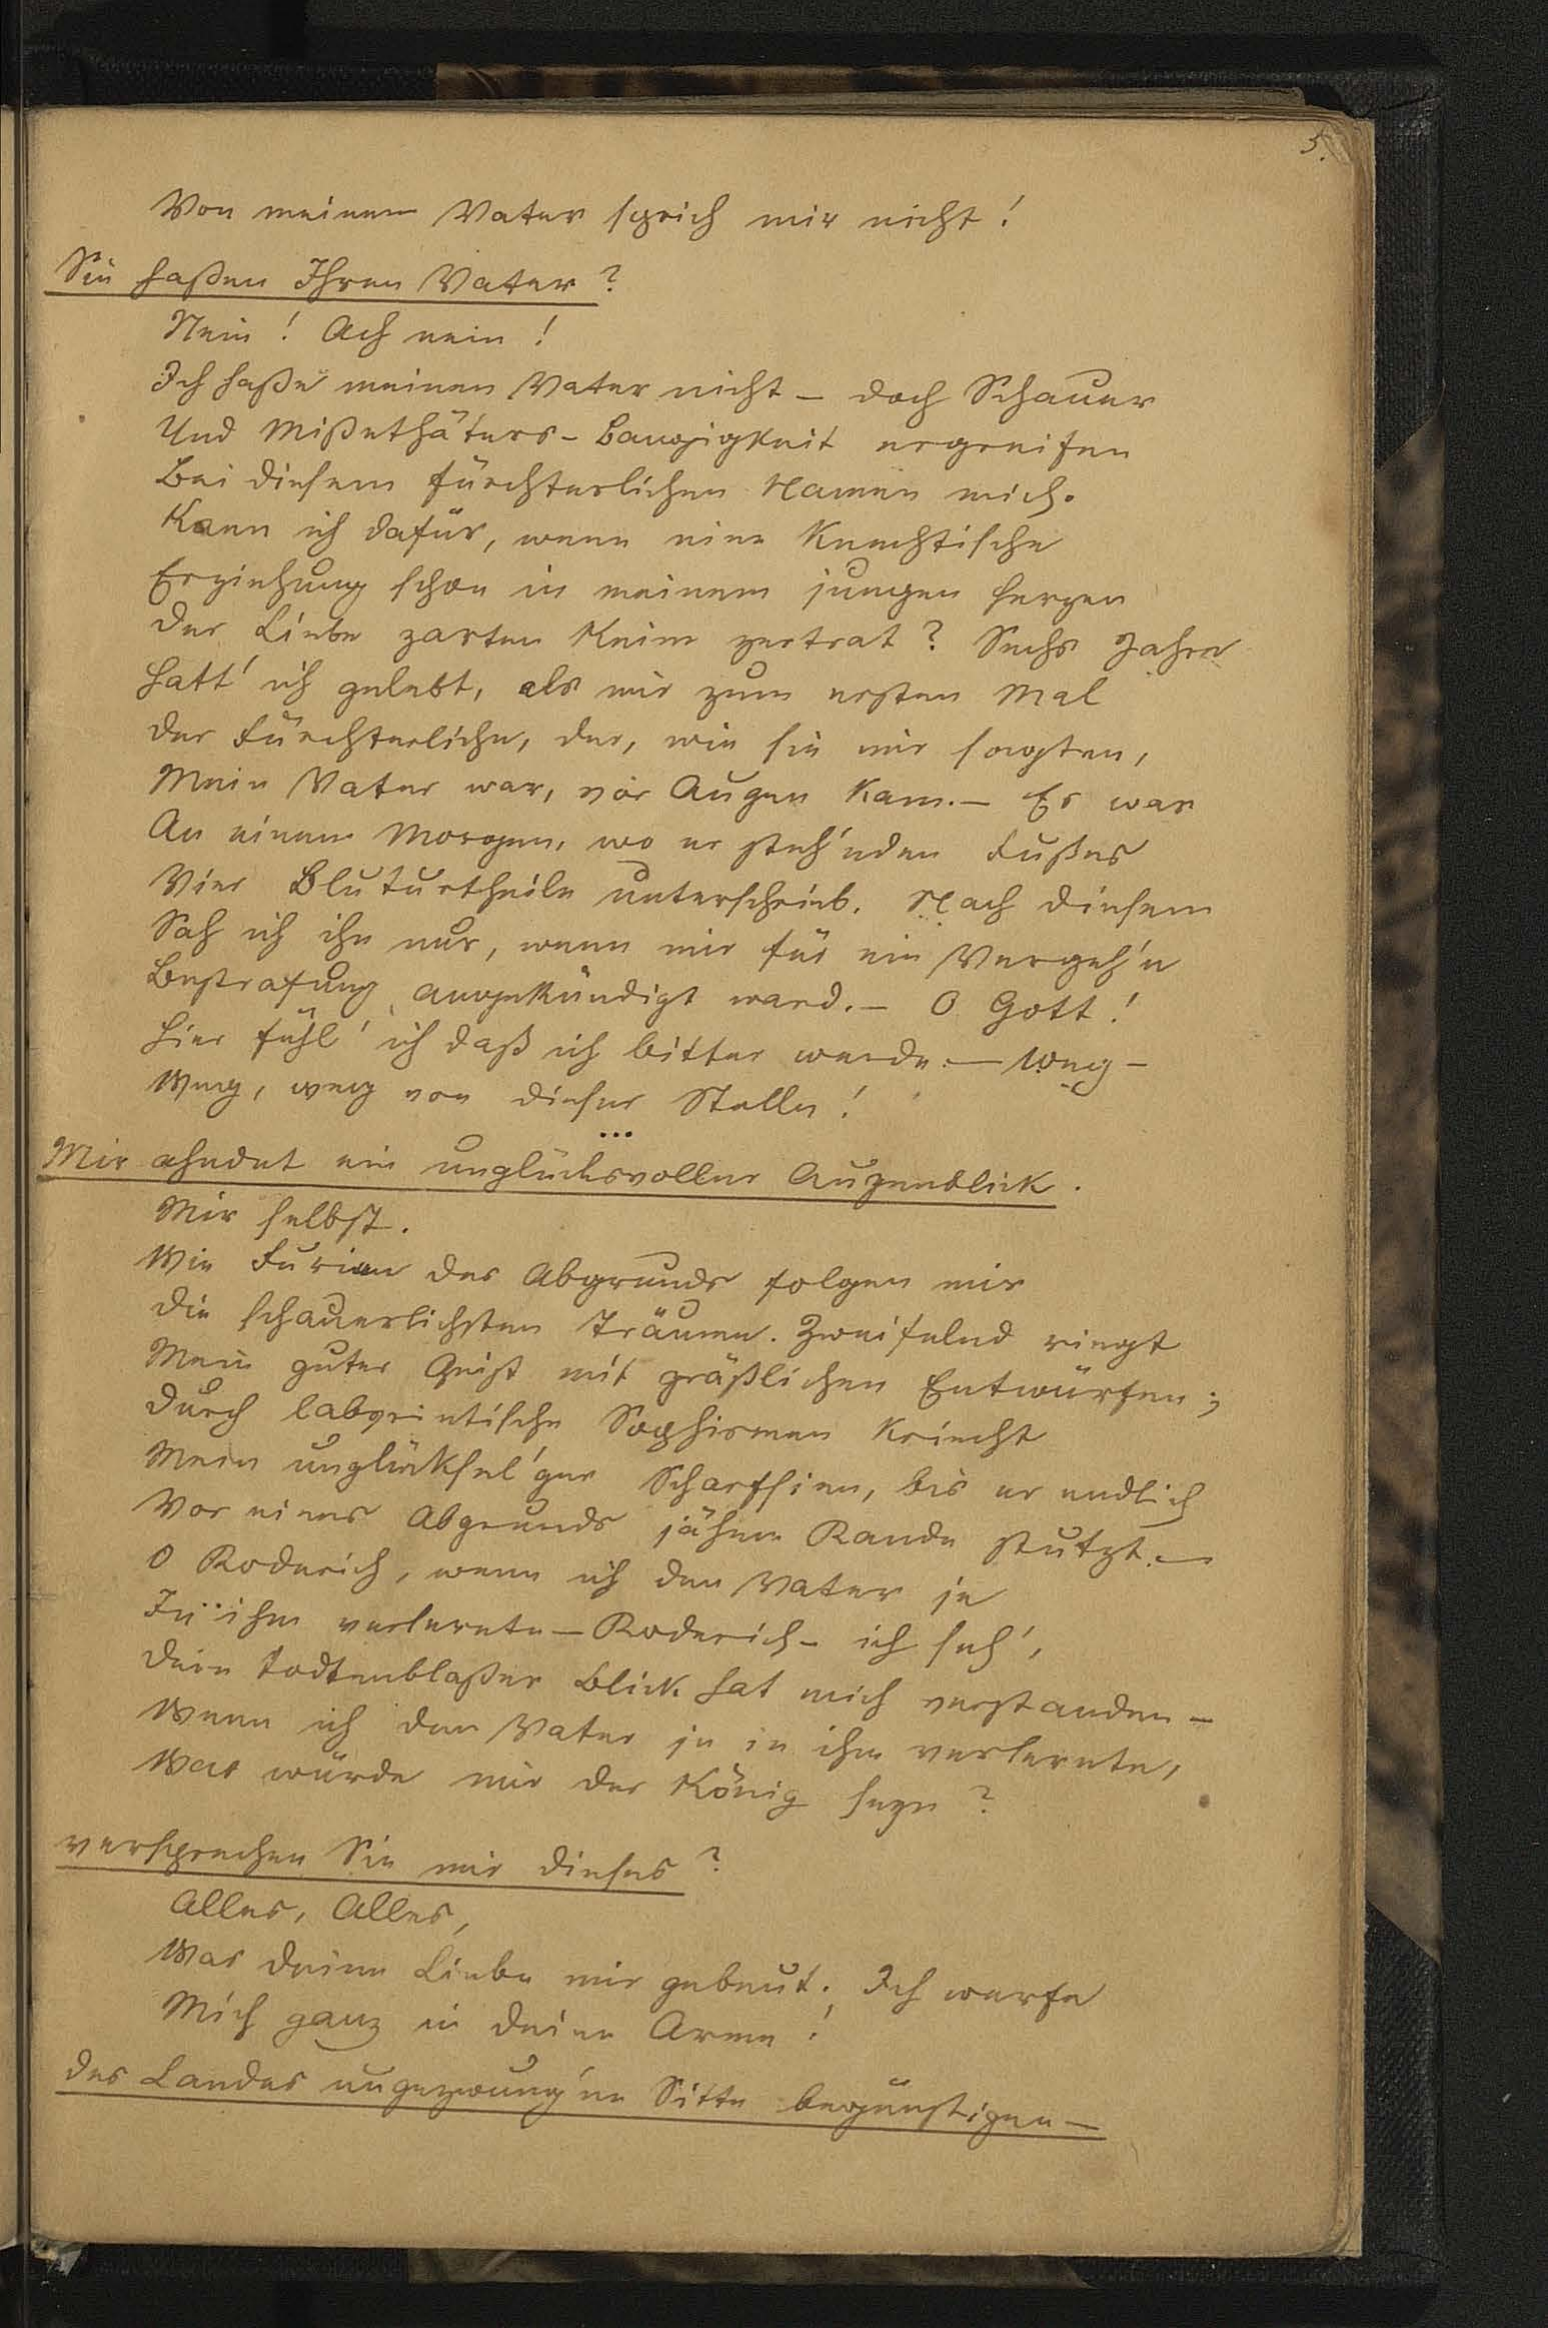 5.
Von meinem Vater sprich mir nicht!
Sie haßen Ihren Vater?
Nein! Ach nein!
Ich haße meinen Vater nicht – doch Schauer
Und Mißethäters-Bangigkeit ergreifen
Bei diesem fürchterlichen Namen mich.
Kann ich dafür, wenn eine knechtische
Erziehung schon in meinem jungen Herzen
Der Liebe zarten Keim zertrat? Sechs Jahre
Hatt' ich gelebt, als mir zum ersten Mal
Der Fürchterliche, der, wie sie mir sagten,
Mein Vater war, vor Augen kam. – Es war
An einem Morgen, wo er steh'nden Fußes
Vier Bluturtheile unterschrieb. Nach diesem
Sah ich ihn nur, wenn mir für ein Vergeh'n
Bestrafung angekündigt ward. – O Gott!
Hier fühl' ich daß ich bitter werde. – Weg –
Weg, weg von dieser Stelle!
...
Mir ahndet ein unglücksvoller Augenblick.
Mir selbst.
Wie Furien des Abgrunds folgen mir
Die schauerlichsten Träume. Zweifelnd ringt
Mein guter Geist mit gräßlichen Entwürfen;
Durch labyrintische Sophismen kriecht
Mein unglücksel'ger Scharfsinn, bis er endlich
Vor eines Abgrunds jähem Rande stutzt. –
O Roderich, wenn ich den Vater je
In ihm verlernte – Roderich – ich seh',
Dein todtenblaßer Blick hat mich verstanden –
Wenn ich den Vater je in ihm verlernte,
Was würde mir der König seyn?
versprechen Sie mir dieses?
Alles, Alles,
Was deine Liebe mir gebeut. Ich werfe
Mich ganz in deine Arme!
des Landes ungezwung'ne Sitte begünstigen –